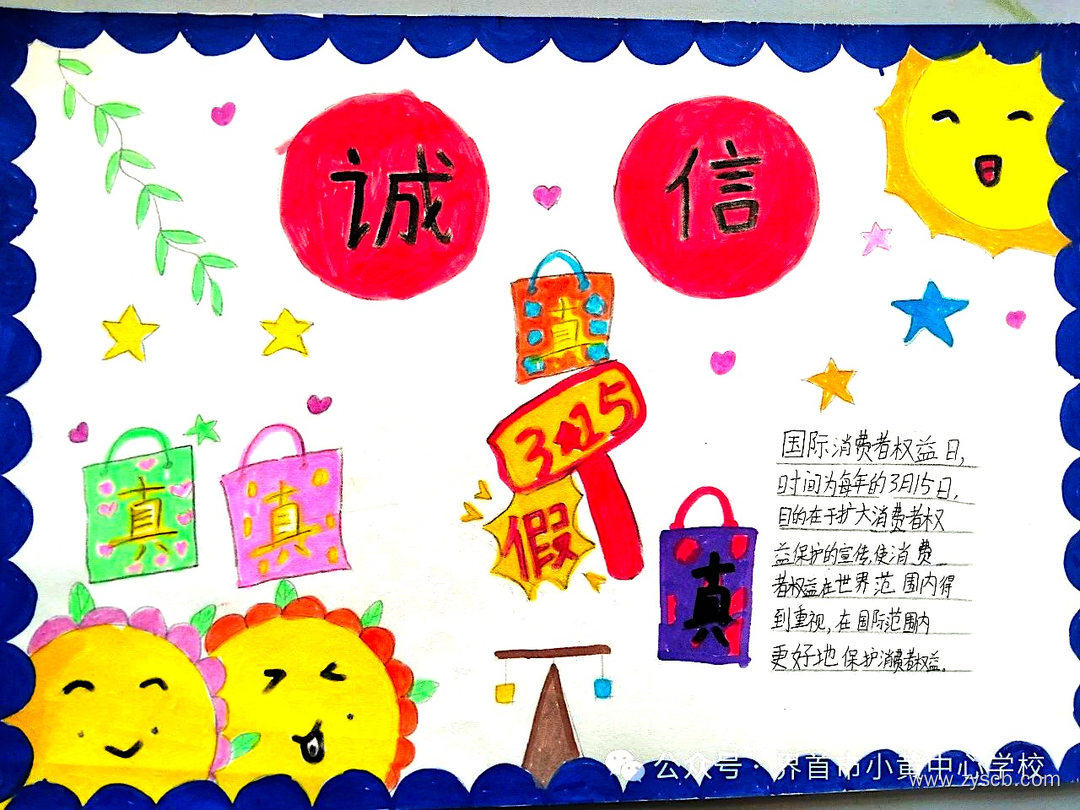 诚 信
真
3·15
假
真 真
真
国际消费者权益日,
时间为每年的3月15日,
目的在于扩大消费者权
益保护的宣传,使消费
者权益在世界范围内得
到重视,在国际范围内
更好地保护消费者权益.
公众号·界首市小黄中心学校
www.zyscb.com